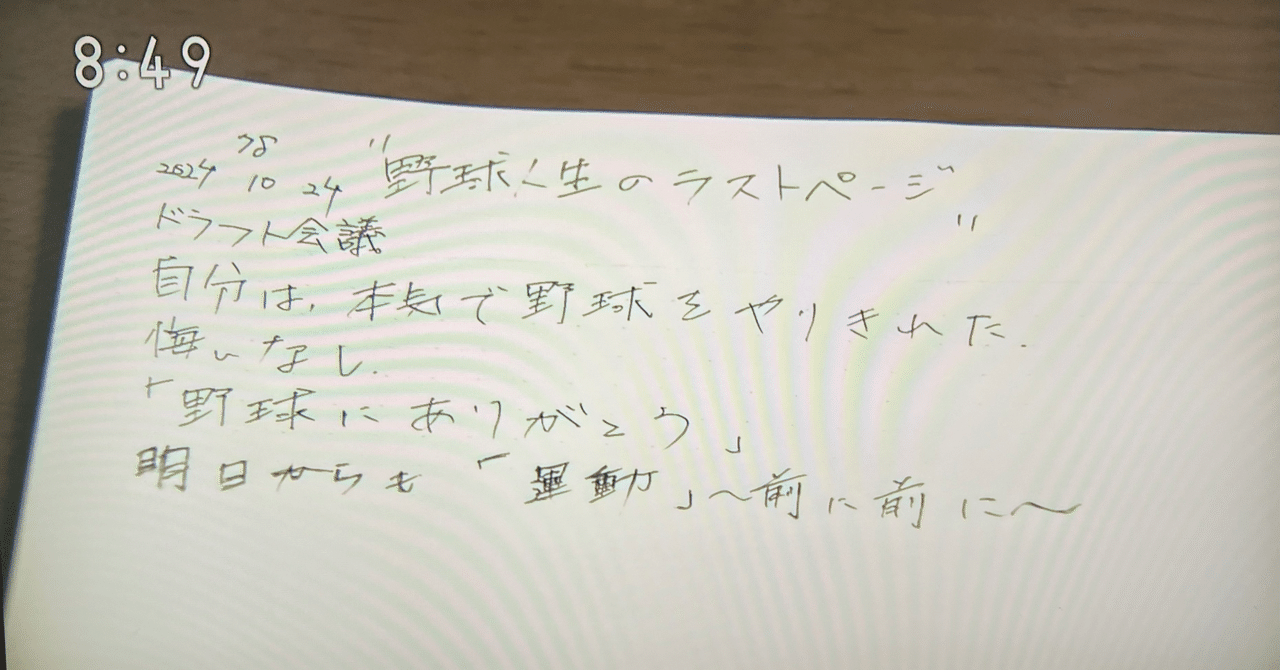 8:49
78
2024 10 24 "野球人生のラストページ"
ドラフト会議
自分は、本気で野球をやりきれた.
悔いなし.
「野球にありがとう」
明日からも「運動」〜前に前に〜